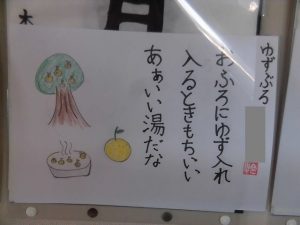 ゆずぶろ
おふろにゆず入れ
入るときもちいい
あぁいい湯だな